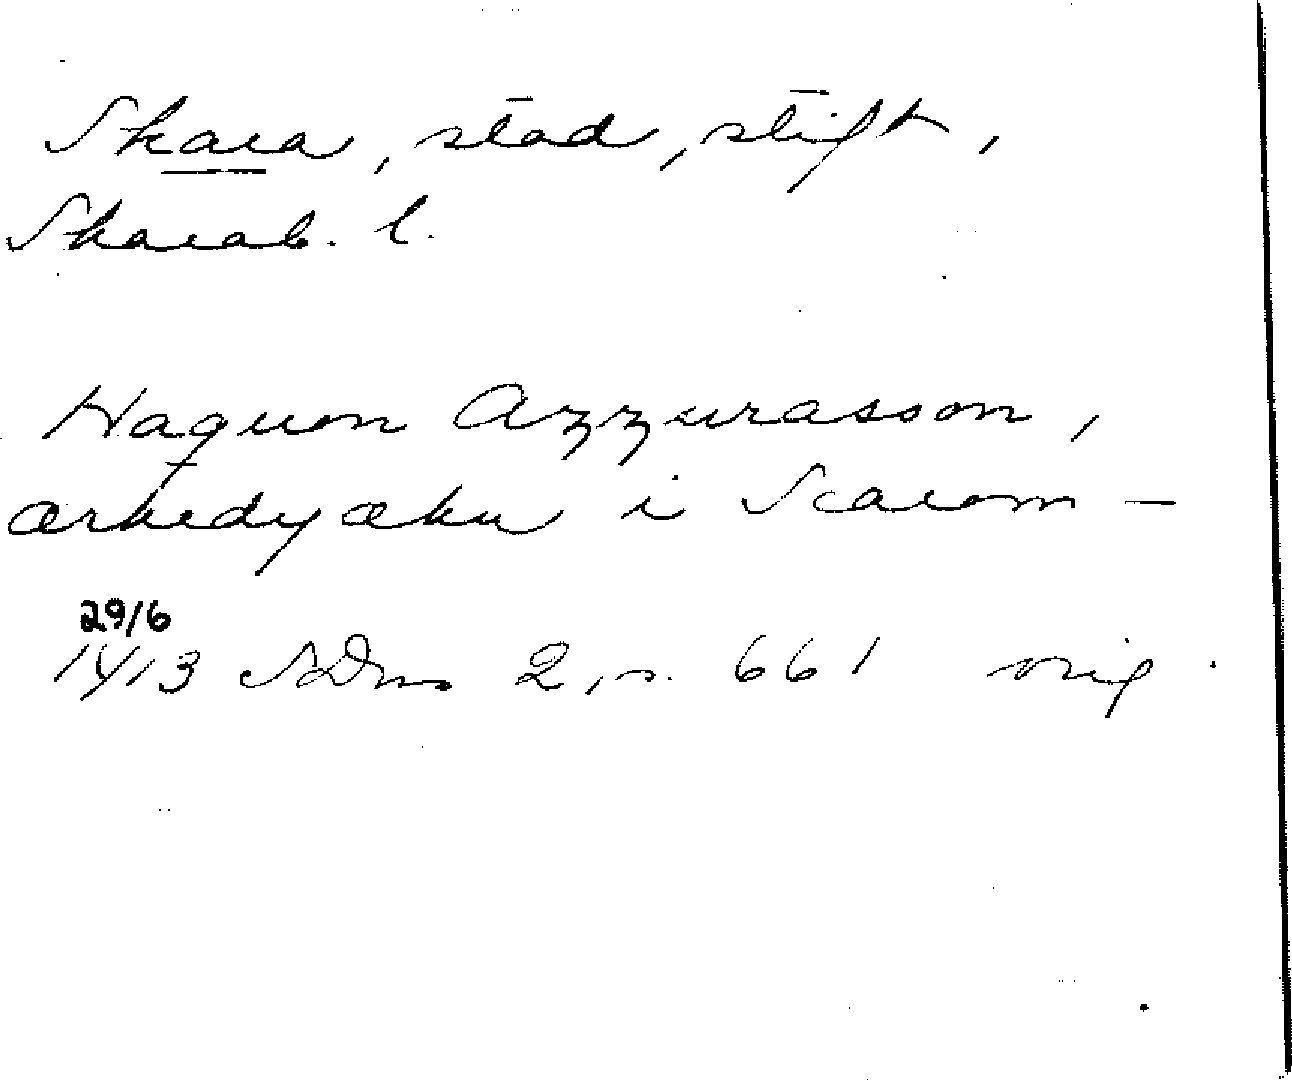 Skara, stad, stift,
Skarab. l.
Haquon Azzurasson,
ærkedyækn i Scarom –
29/6
1413 SDns 2, s. 661 orig.